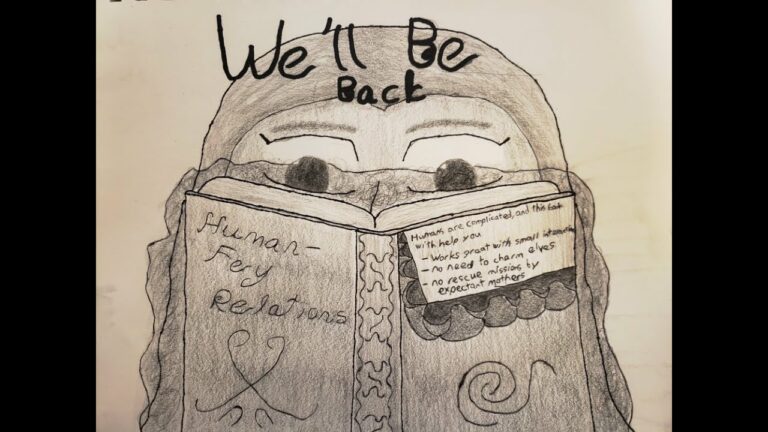 We'll Be
Back
Human-
Fery
Relations
Humans are complicated, and this
with help you
- Works great with small
- no need to charm elves
- no rescue missions by
expectant mothers